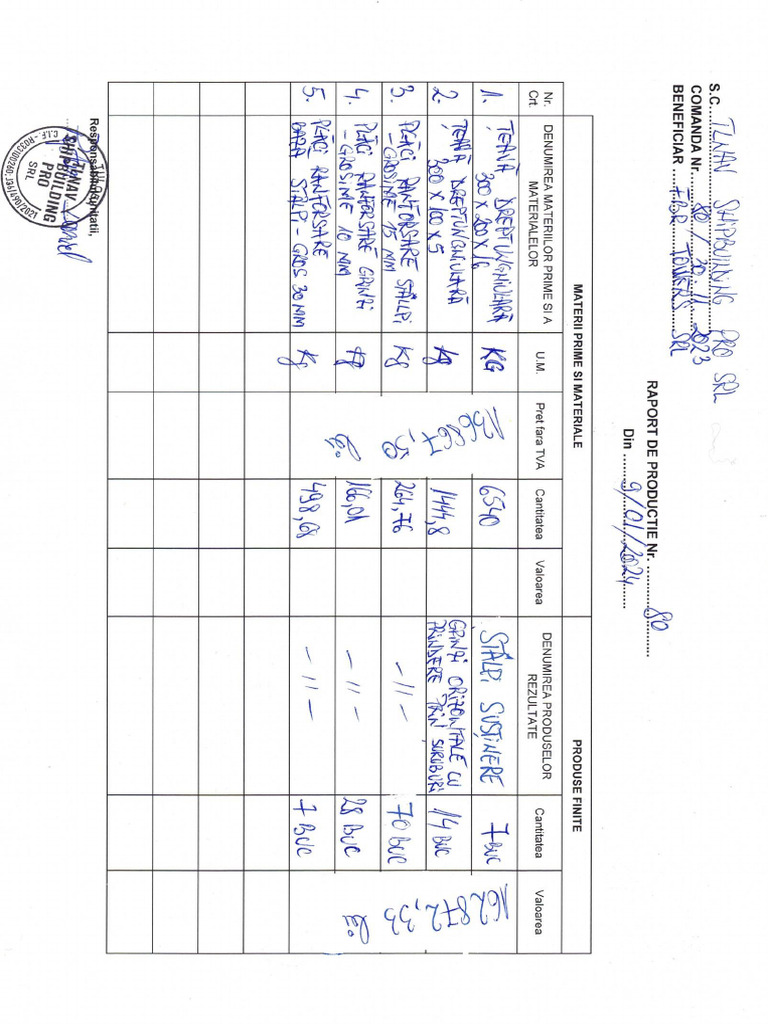 S.C. TLNAV SHIPBUILDING PRO SRL
COMANDA Nr. 80 / 30.11.2023
BENEFICIAR IBR TOWERS SRL
RAPORT DE PRODUCTIE Nr. 80
Din 9/01/2024
MATERII PRIME SI MATERIALE PRODUSE FINITE
Nr. Crt. DENUMIREA MATERIILOR PRIME SI A MATERIALELOR U.M. Pret fara TVA Cantitatea Valoarea DENUMIREA PRODUSELOR REZULTATE Cantitatea Valoarea
1. ȚEAVĂ DREPTUNGHIULARĂ KG 6540 STÂLPI SUSȚINERE 7 BUC
300 x 200 x 16
2. ȚEAVĂ DREPTUNGHIULARĂ Kg 1444,8 GRINZI ORIZONTALE CU 14 BUC
300 x 100 x 5 PRINDERE PRIN SURUBURI
3. PLĂCI RANFORSARE STÂLPI Kg 264,76 -11- 70 BUC
- GROSIME 15 MM
4. PLĂCI RANFORSARE GRINZI Kg 166,01 -11- 28 BUC
- GROSIME 10 MM
5. PLĂCI RANFORSARE Kg 498,68 -11- 7 BUC
BAZA STÂLP - GROS 30 MM
136 867,50 lei
162 872,33 lei
Responsabilitatii,
TLNAV
SHIPBUILDING
PRO
SRL